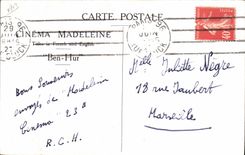 CARTE POSTALE
CINÉMA MADELEINE
Titles in French and English
Ben-Hur
Bons Souvenirs
envoyés de "Madeleine
Cinema" 23 8
R.C.H.
Melle Juliette Negre
18 rue Jaubert
Marseille